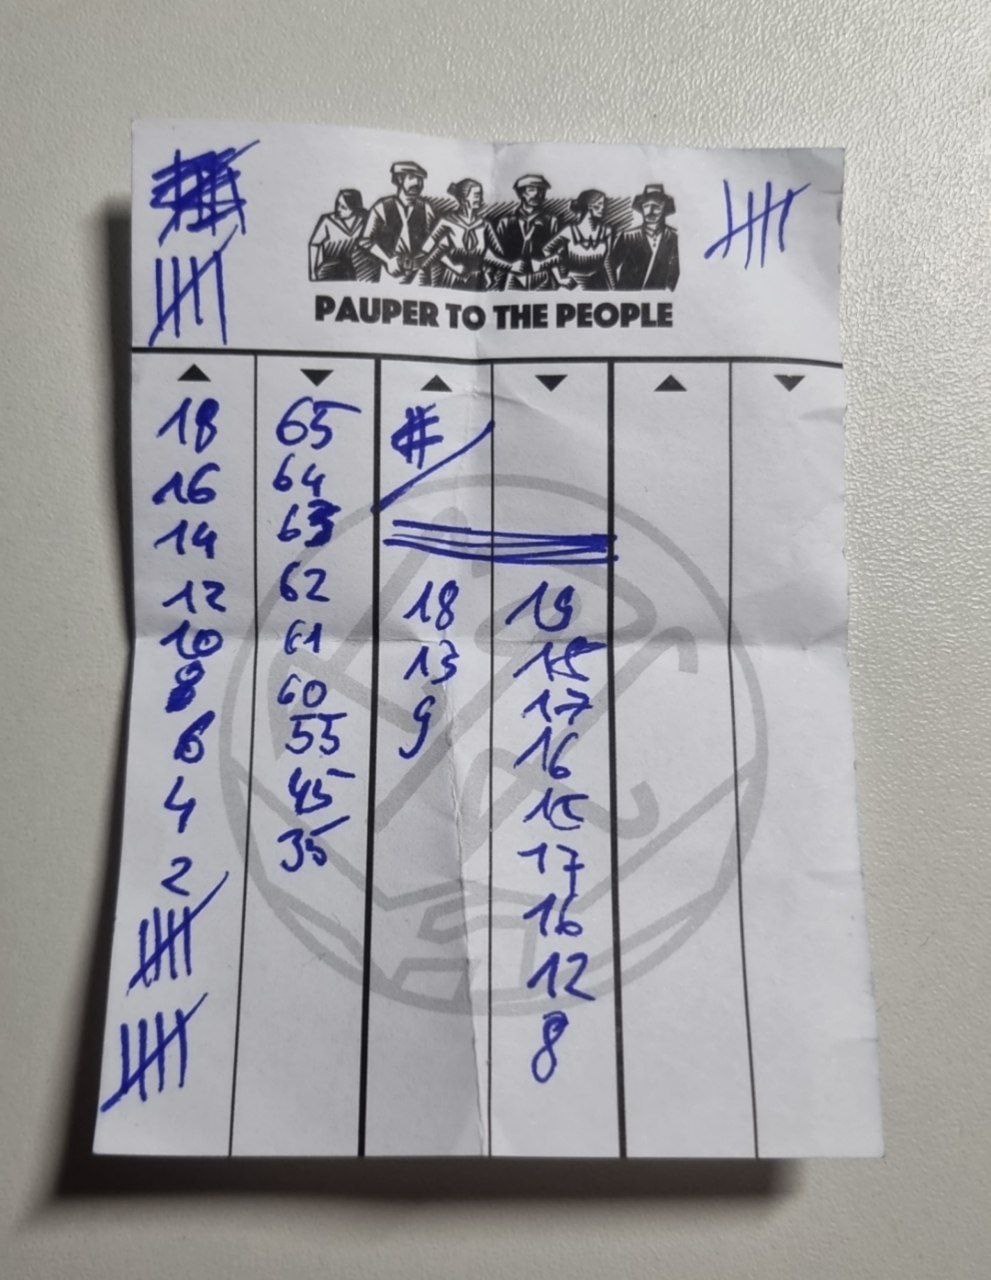 PAUPER TO THE PEOPLE
▲ ▼ ▲ ▼ ▲ ▼
18
16
14
12
10
8
6
4
2
65
64
63
62
61
60
55
45
35
#
18
13
9
19
18
17
16
15
17
16
12
8